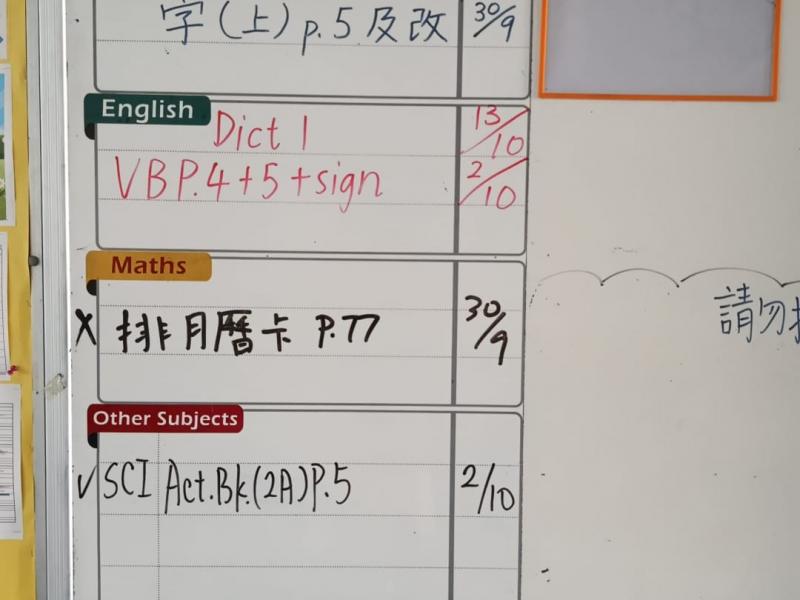 字(上)p.5及改 30/9
English
Dict 1 13/10
VB P.4+5+sign 2/10
Maths
X 排月曆卡 P.77 30/9
請勿
Other Subjects
✓ SCI Act.Bk.(2A)P.5 2/10